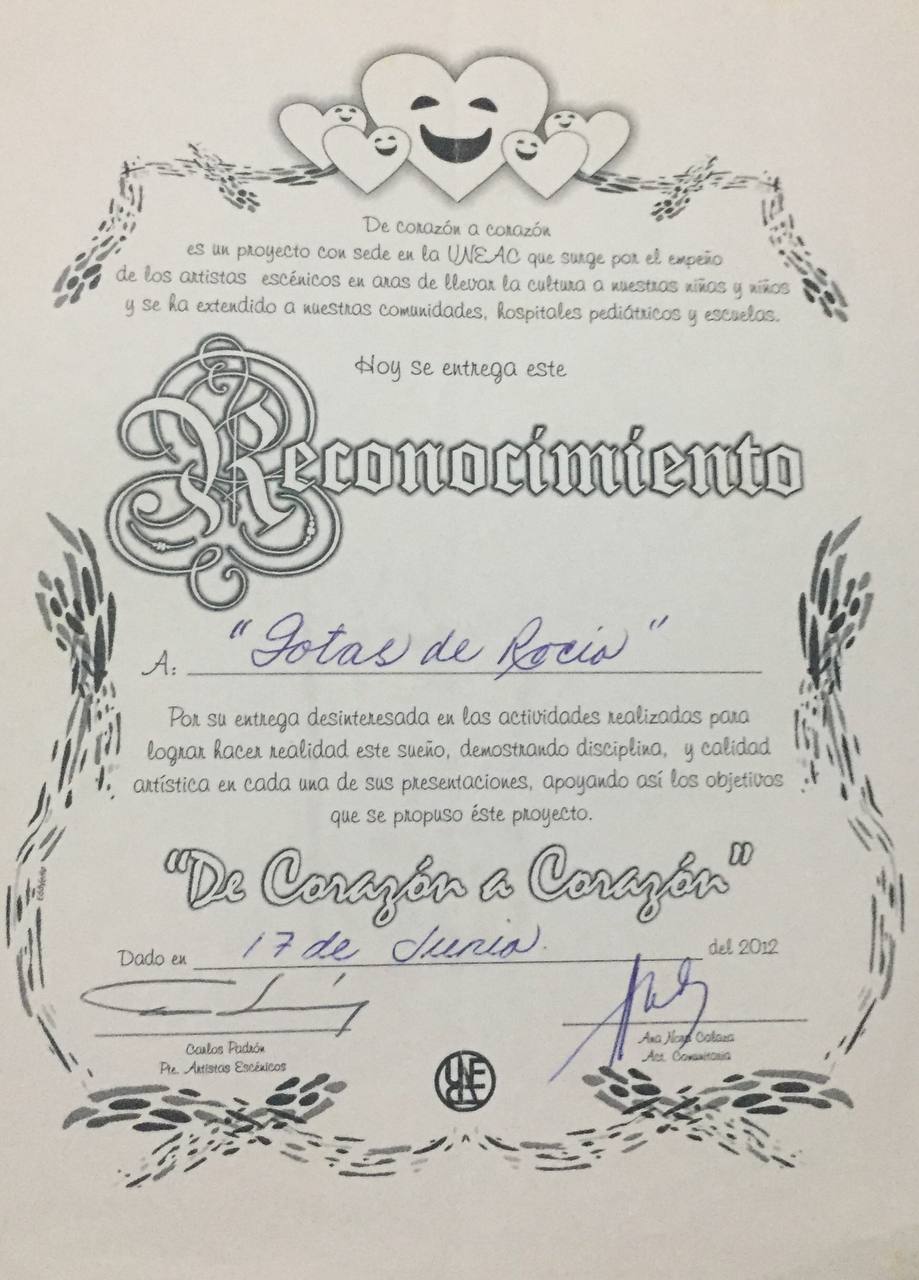 De corazón a corazón
es un proyecto con sede en la UNEAC que surge por el empeño
de los artistas escénicos en aras de llevar la cultura a nuestras niñas y niños
y se ha extendido a nuestras comunidades, hospitales pediátricos y escuelas.
Hoy se entrega este
Reconocimiento
A: "Gotas de Rocío"
Por su entrega desinteresada en las actividades realizadas para
lograr hacer realidad este sueño, demostrando disciplina, y calidad
artística en cada una de sus presentaciones, apoyando así los objetivos
que se propuso éste proyecto.
"De Corazón a Corazón"
Dado en 17 de Junio. del 2012
Carlos Padrón
Pte. Artistas Escénicos
Ana Nora
Act. Comunitaria